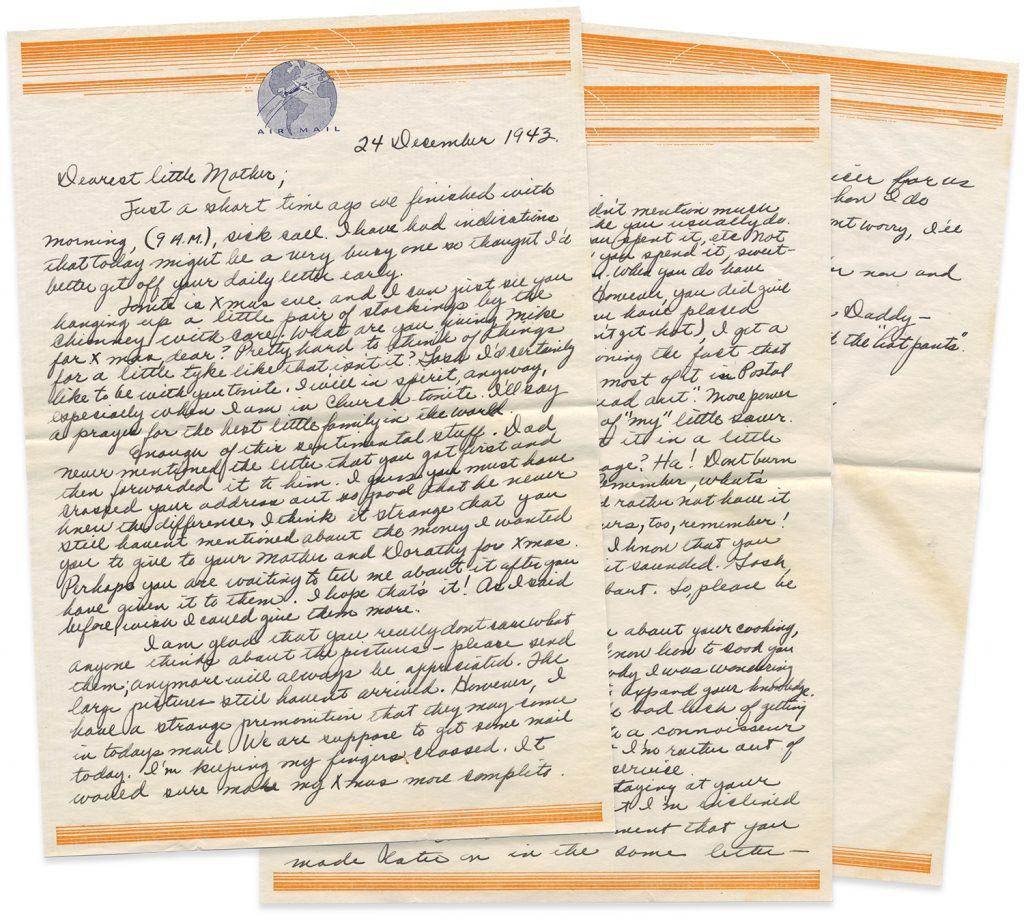 AIR MAIL
24 December 1943.
Dearest little Mother;
Just a short time ago we finished with
morning, (9 A.M.), sick call. I have had indications
that today might be a very busy one so thought I'd
better get off your daily letter early.
Tonite is Xmas eve and I can just see you
hanging up a little pair of stockings by the
chimney with care. What are you giving Mike
for Xmas dear? Pretty hard to think of things
for a little tyke like that isn't it? Gosh I'd certainly
like to be with you tonite. I will in spirit, anyway,
especially when I am in Church tonite. I'll say
a prayer for the best little family in the world.
Enough of this sentimental stuff. Dad
never mentioned the letter that you got first and
then forwarded it to him. I guess you must have
crossed your address out so good that he never
knew the difference. I think it strange that you
still havent mentioned about the money I wanted
you to give to your Mother and Dorothy for Xmas.
Perhaps you are waiting to tell me about it after you
have given it to them. I hope that's it! As I said
before wish I could give them more.
I am glad that you really dont care what
anyone thinks about the pictures - please send
them; anymore will always be appreciated. The
large pictures still havent arrived. However, I
have a strange premonition that they may come
in todays mail. We are suppose to get some mail
today. I'm keeping my fingers crossed. It
would sure make my Xmas more complete.
dn't mention much
like you usually do.
you spent it, etc. Not
you spend it, sweet-
. When you do have
However, you did give
have placed
n't get hot), I get a
oning the fact that
most of it in Postal
ead out". More power
of "my" little saver.
t it in a little
age? Ha! Dont burn
Remember, what's
d rather not have it
urs, too, remember!
I know that you
it sounded. Gosh,
heart. So, please be
about your cooking,
know how to cook you
ody I was wondering
expand your knowledge.
bad luck of getting
a connoisseur
I'm rather out of
service.
staying at your
t I'm inclined
ment that you
made later on in the same letter -
icer for us
hon I do
nt worry, I'll
r now and
Daddy -
the "hot pants".